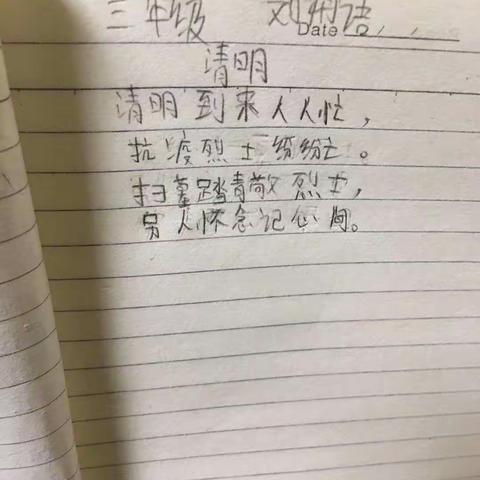 三年级 刘语
Date
清明
清明到来人人忙，
抗疫烈士纷。
扫墓踏青敬烈士，
另人怀念记心间。